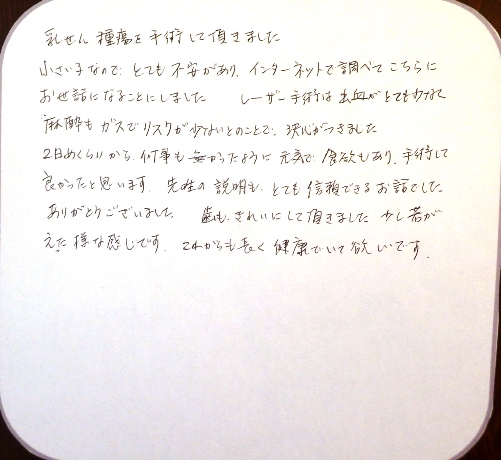 乳せん 腫瘍を手術して頂きました
小さい子なので、とても不安があり、インターネットで調べてこちらに
お世話になることにしました レーザー手術は出血がとても少なくて
麻酔もガスでリスクが少ないとのことで、決心がつきました
2日めくらいから、何事も無かったように元気で食欲もあり、手術して
良かったと思います、先生の説明も、とても信頼できるお話でした
ありがとうございました、 歯も、きれいにして頂きました 少し若が
えた様な感じです、これからも長く健康でいて欲しいです.